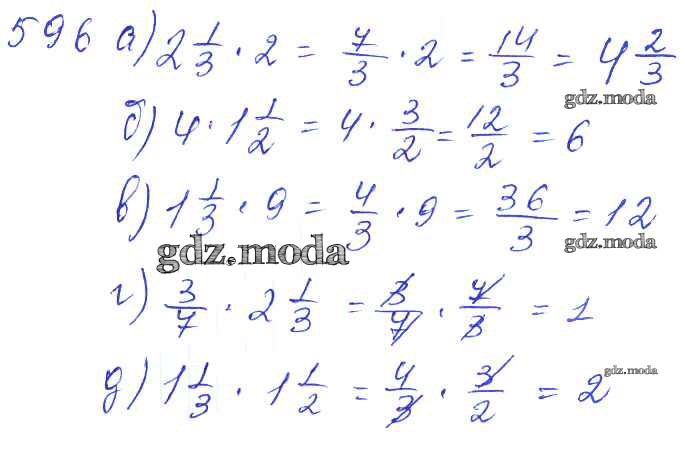 596 а) 2 1/3 · 2 = 7/3 · 2 = 14/3 = 4 2/3
gdz.moda
б) 4 · 1 1/2 = 4 · 3/2 = 12/2 = 6
в) 1 1/3 · 9 = 4/3 · 9 = 36/3 = 12
gdz.moda
gdz.moda
г) 3/7 · 2 1/3 = 3/7 · 7/3 = 1
gdz.moda
д) 1 1/3 · 1 1/2 = 4/3 · 3/2 = 2